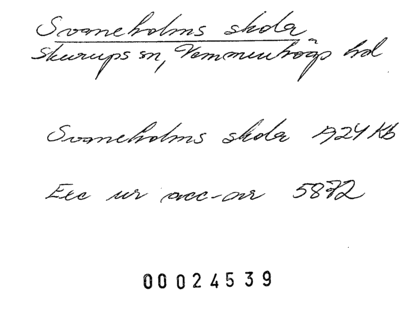 Svaneholms skola
Skurups sn, Vemmenhögs hd
Svaneholms skola 1924 Kb
Exc ur acc-nr 5872
00024539